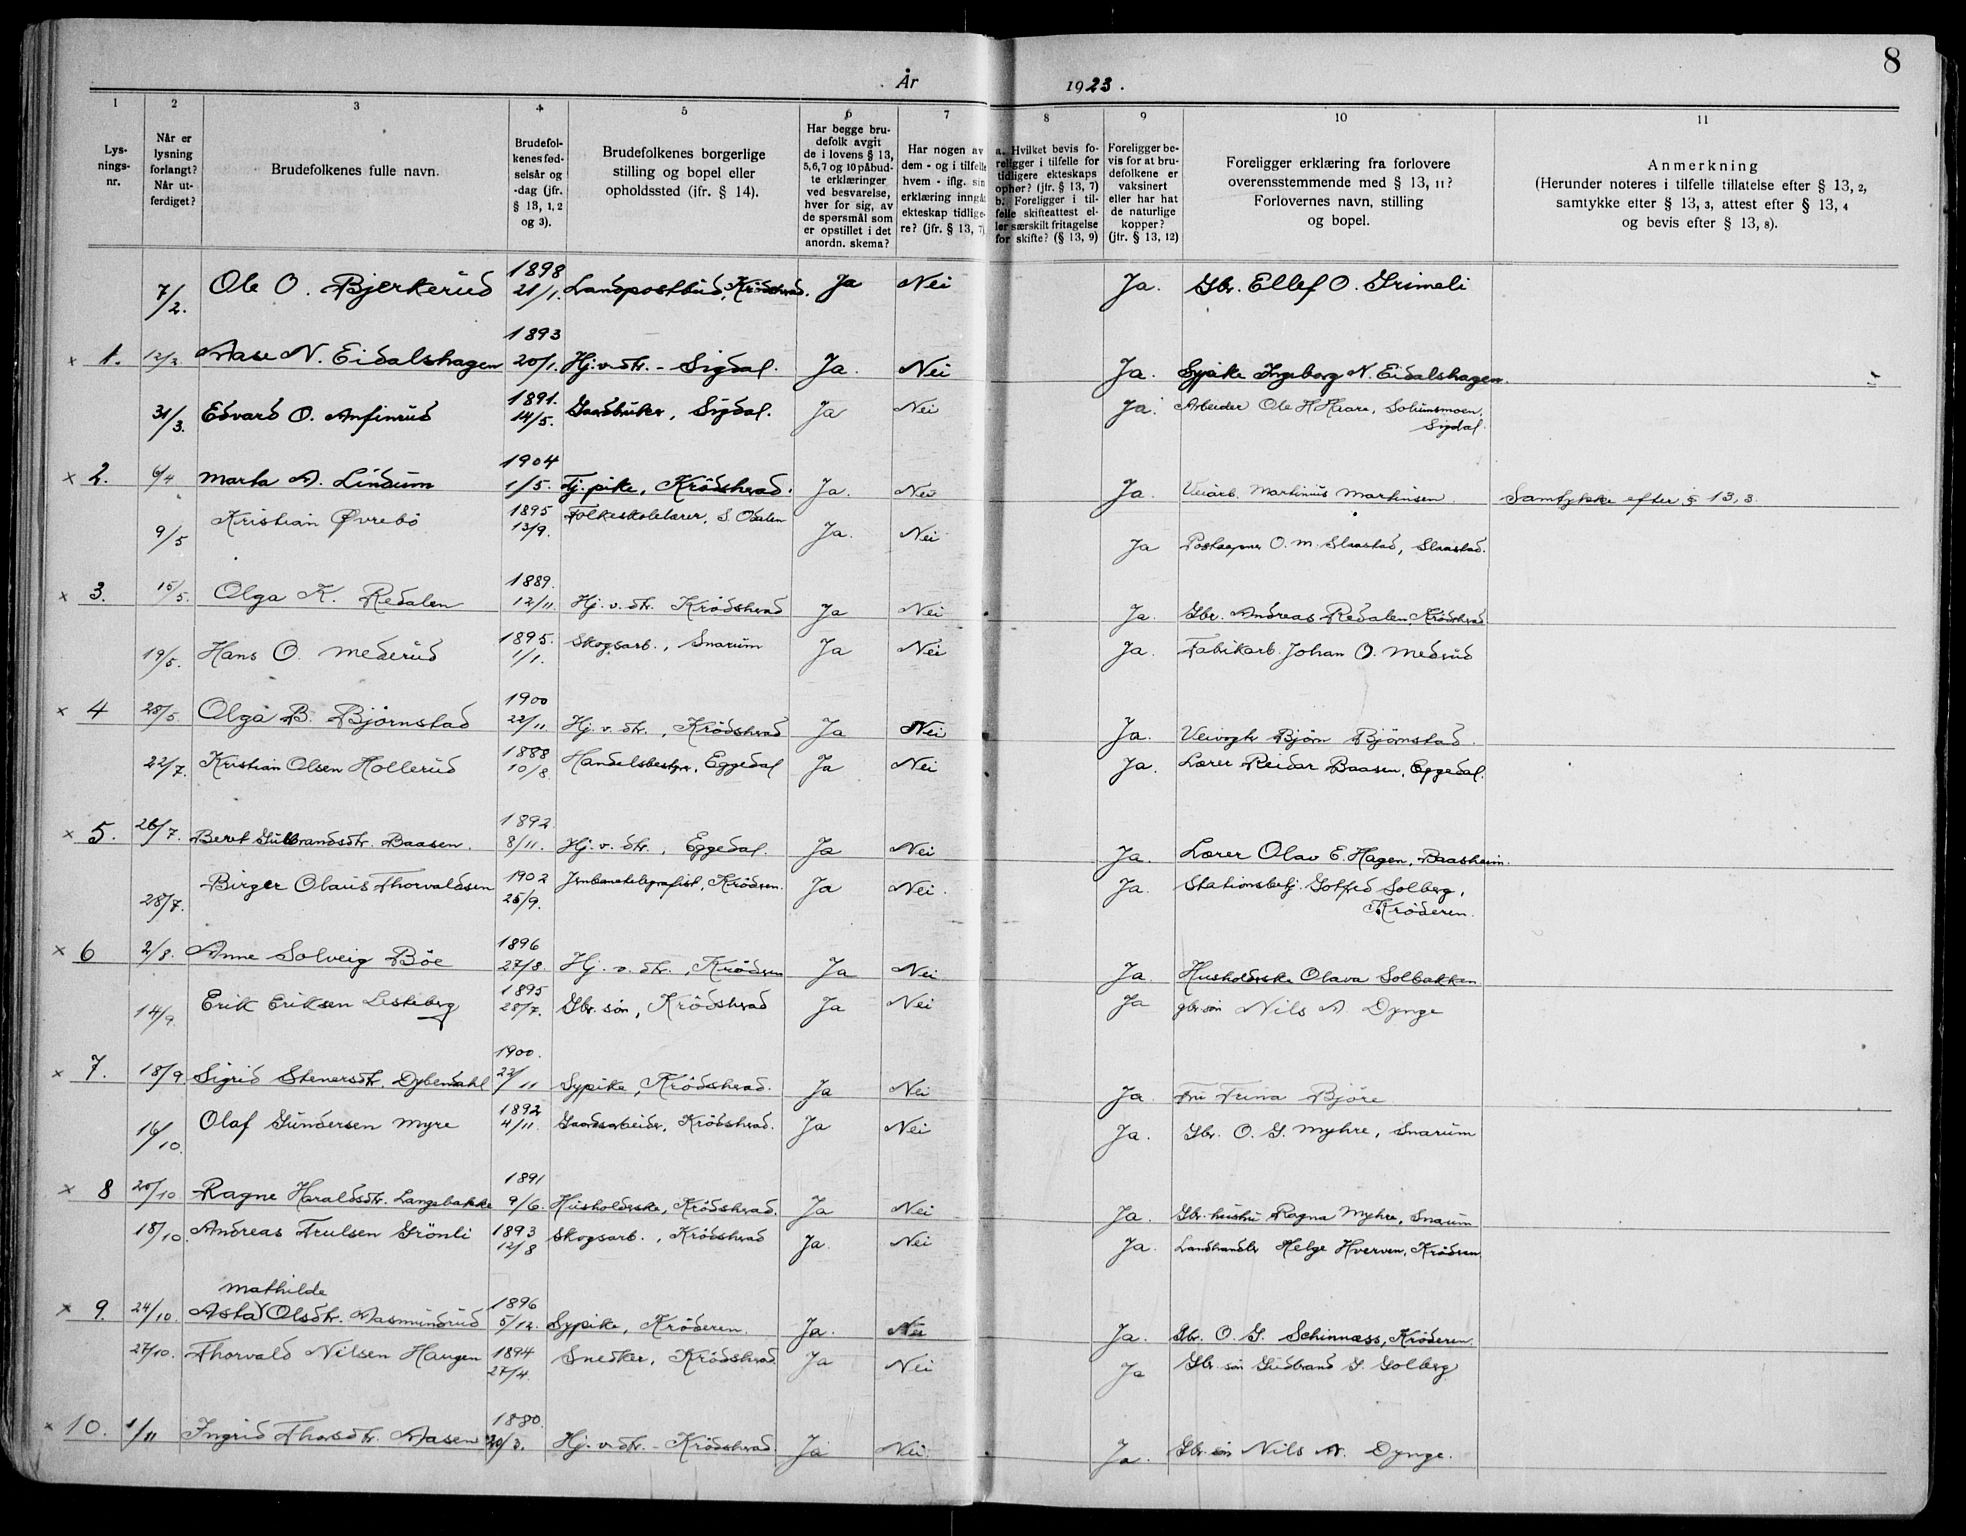 År 1923.
8
1 2 3 4 5 6 7 8 9 10 11
Lysnings-nr.
Når er lysning forlangt? Når utferdiget?
Brudefolkenes fulle navn.
Brudefolkenes fødselsår og -dag (jfr. § 13, 1, 2 og 3).
Brudefolkenes borgerlige stilling og bopel eller opholdssted (jfr. § 14).
Har begge brudefolk avgit de i lovens § 13, 5,6,7 og 10 påbudte erklæringer ved besvarelse, hver for sig, av de spørsmål som er opstillet i det anordn. skema?
Har nogen av dem - og i tilfelle hvem - iflg. sin erklæring inngåt ekteskap tidligere? (jfr. § 13, 7)
a. Hvilket bevis foreligger i tilfelle for tidligere ekteskaps ophør? (jfr. § 13, 7) b. Foreligger i tilfelle skifteattest eller særskilt fritagelse for skifte? (§ 13, 9)
Foreligger bevis for at brudefolkene er vaksinert eller har hat de naturlige kopper? (jfr. § 13, 12)
Foreligger erklæring fra forlovere overensstemmende med § 13, 11? Forlovernes navn, stilling og bopel.
Anmerkning (Herunder noteres i tilfelle tillatelse efter § 13, 2, samtykke efter § 13, 3, attest efter § 13, 4 og bevis efter § 13, 8).
7/2. Ole O. Bjerkerud 1898 21/1. Landpostbud, Krödsherad. Ja Nei Ja. Gbr. Ellef O. Grimeli
× 1. 12/2 Aase N. Eidalshagen 1893 20/1. Hj.v.dtr. - Sigdal. Ja. Nei Ja. Sypike Ingeborg N. Eidalshagen.
31/3. Edvard O. Anfinrud 1891. 14/5. Gaardbruker, Sigdal. Ja Nei Ja. Arbeider Ole H Haare, Solumsmoen, Sigdal.
× 2. 6/4 Marta A. Lindum 1904 1/5. Tj. pike, Krödsherad. Ja. Nei Ja. Veiarb. Martinius Martinsen. Samtykke efter § 13, 3.
9/5 Kristian Øvrebö 1895 13/9. Folkeskolelærer, S. Odalen Ja. Nei Ja Postaapner O. M. Slaastad, Slaastad.
× 3. 15/5. Olga K. Redalen 1889. 12/11. Hj. v. dtr. Krödsherad Ja Nei Ja. Gbr. Andreas Redalen, Krödsherad
19/5. Hans O. Mederud 1895. 1/1. Skogsarb., Snarum Ja Nei Ja. Fabikarb. Johan O. Medrud
× 4 28/5. Olga B. Björnstad 1900 22/11. Hj. v. dtr., Krödsherad Ja Nei Ja. Veivogter Björn Björnstad.
22/7. Kristian Olsen Hollerud 1888 10/8. Handelsbestyr., Eggedal Ja Nei Ja. Lærer Reidar Baasen, Eggedal.
× 5. 26/7. Beret Gulbrandsdtr. Baasen. 1892. 8/11. Hj. v. dtr., Eggedal. Ja Nei Ja. Lærer Olav E. Hagen, Baasheim.
28/7. Birger Olaus Thorvaldsen 1902 25/9. Jernbanetelegrafist, Krödren. Ja Nei. Ja. Stationsbetj. Gotfred Solberg, Kröderen.
× 6 2/8. Anne Solveig Böe 1896 27/8. Hj. v. dtr., Krödren Ja Nei Ja. Husholderske Olava Solbakken
14/9. Erik Eriksen Leskeberg 1895 28/7. Gbr. sön, Krödsherad Ja Nei Ja gbr. sön Nils A. Dynge
× 7. 18/9 Sigrid Stenersdtr. Dybendahl 1900. 22/11 Sypike, Krödsherad. Ja Nei Ja. Fru Trina Björe
16/10. Olaf Gundersen Myre 1892 4/11. Gaardsarbeider, Krödsherad. Ja Nei Ja. Gbr. O. G. Myhre, Snarum
× 8 20/10 Ragne Haraldsdtr. Langebakke 1891 9/6. Husholderske, Krödsherad. Ja Nei Ja. Gbr. hustru Ragna Myhre, Snarum
18/10. Andreas Trulsen Grönli 1893 12/8 Skogsarb., Krödsherad Ja. Nei Ja. Landhandler Helge Hverven, Krödren
× 9. 24/10. Asta Mathilde Olsdtr. Aasmundrud 1896 5/12. Sypike, Kröderen. Ja. Nei Ja. Gbr. O. G. Schinnæss, Kröderen.
27/10. Thorvald Nilsen Haugen 1894 27/4. Snedker, Krödsherad Ja Nei Ja Gbr. sön Gudbrand G. Solberg
× 10. 1/11 Ingrid Thorsdtr. Aasen 1880. 20/3. Hj. v. dtr. - Krödsherad. Ja Nei. Ja. Gbr. sön Nils A. Dynge.